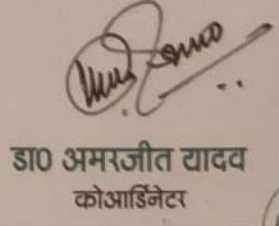 डा0 अमरजीत यादव
कोआर्डिनेटर